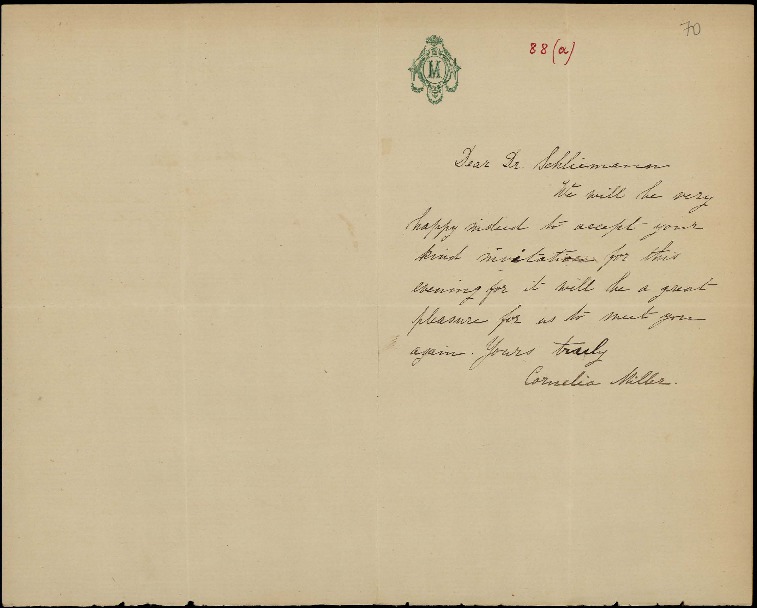 70
88(a)
M
Dear Dr. Schliemann
We will be very
happy indeed to accept your
kind invitation for this
evening for it will be a great
pleasure for us to meet you
again. Yours truly
Cornelia Miller.